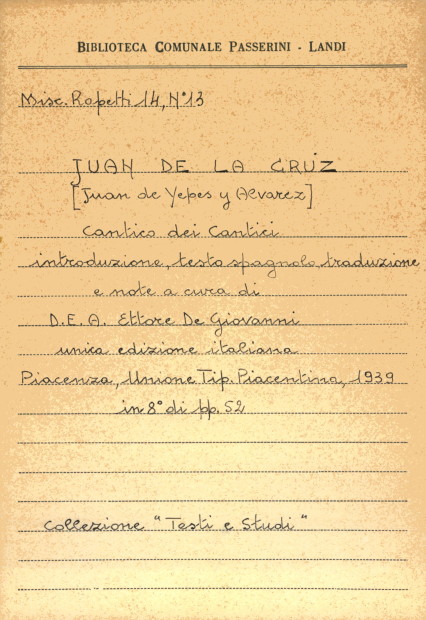 BIBLIOTECA COMUNALE PASSERINI - LANDI
Misc. Rapetti 14, N° 13
JUAN DE LA CRUZ
[Juan de Yepes y Alvarez]
Cantico dei Cantici
introduzione, testo spagnolo, traduzione
e note a cura di
D.E.A. Ettore De Giovanni
unica edizione italiana
Piacenza, Unione Tip. Piacentina, 1939
in 8° di pp. 52
Collezione "Testi e Studi"